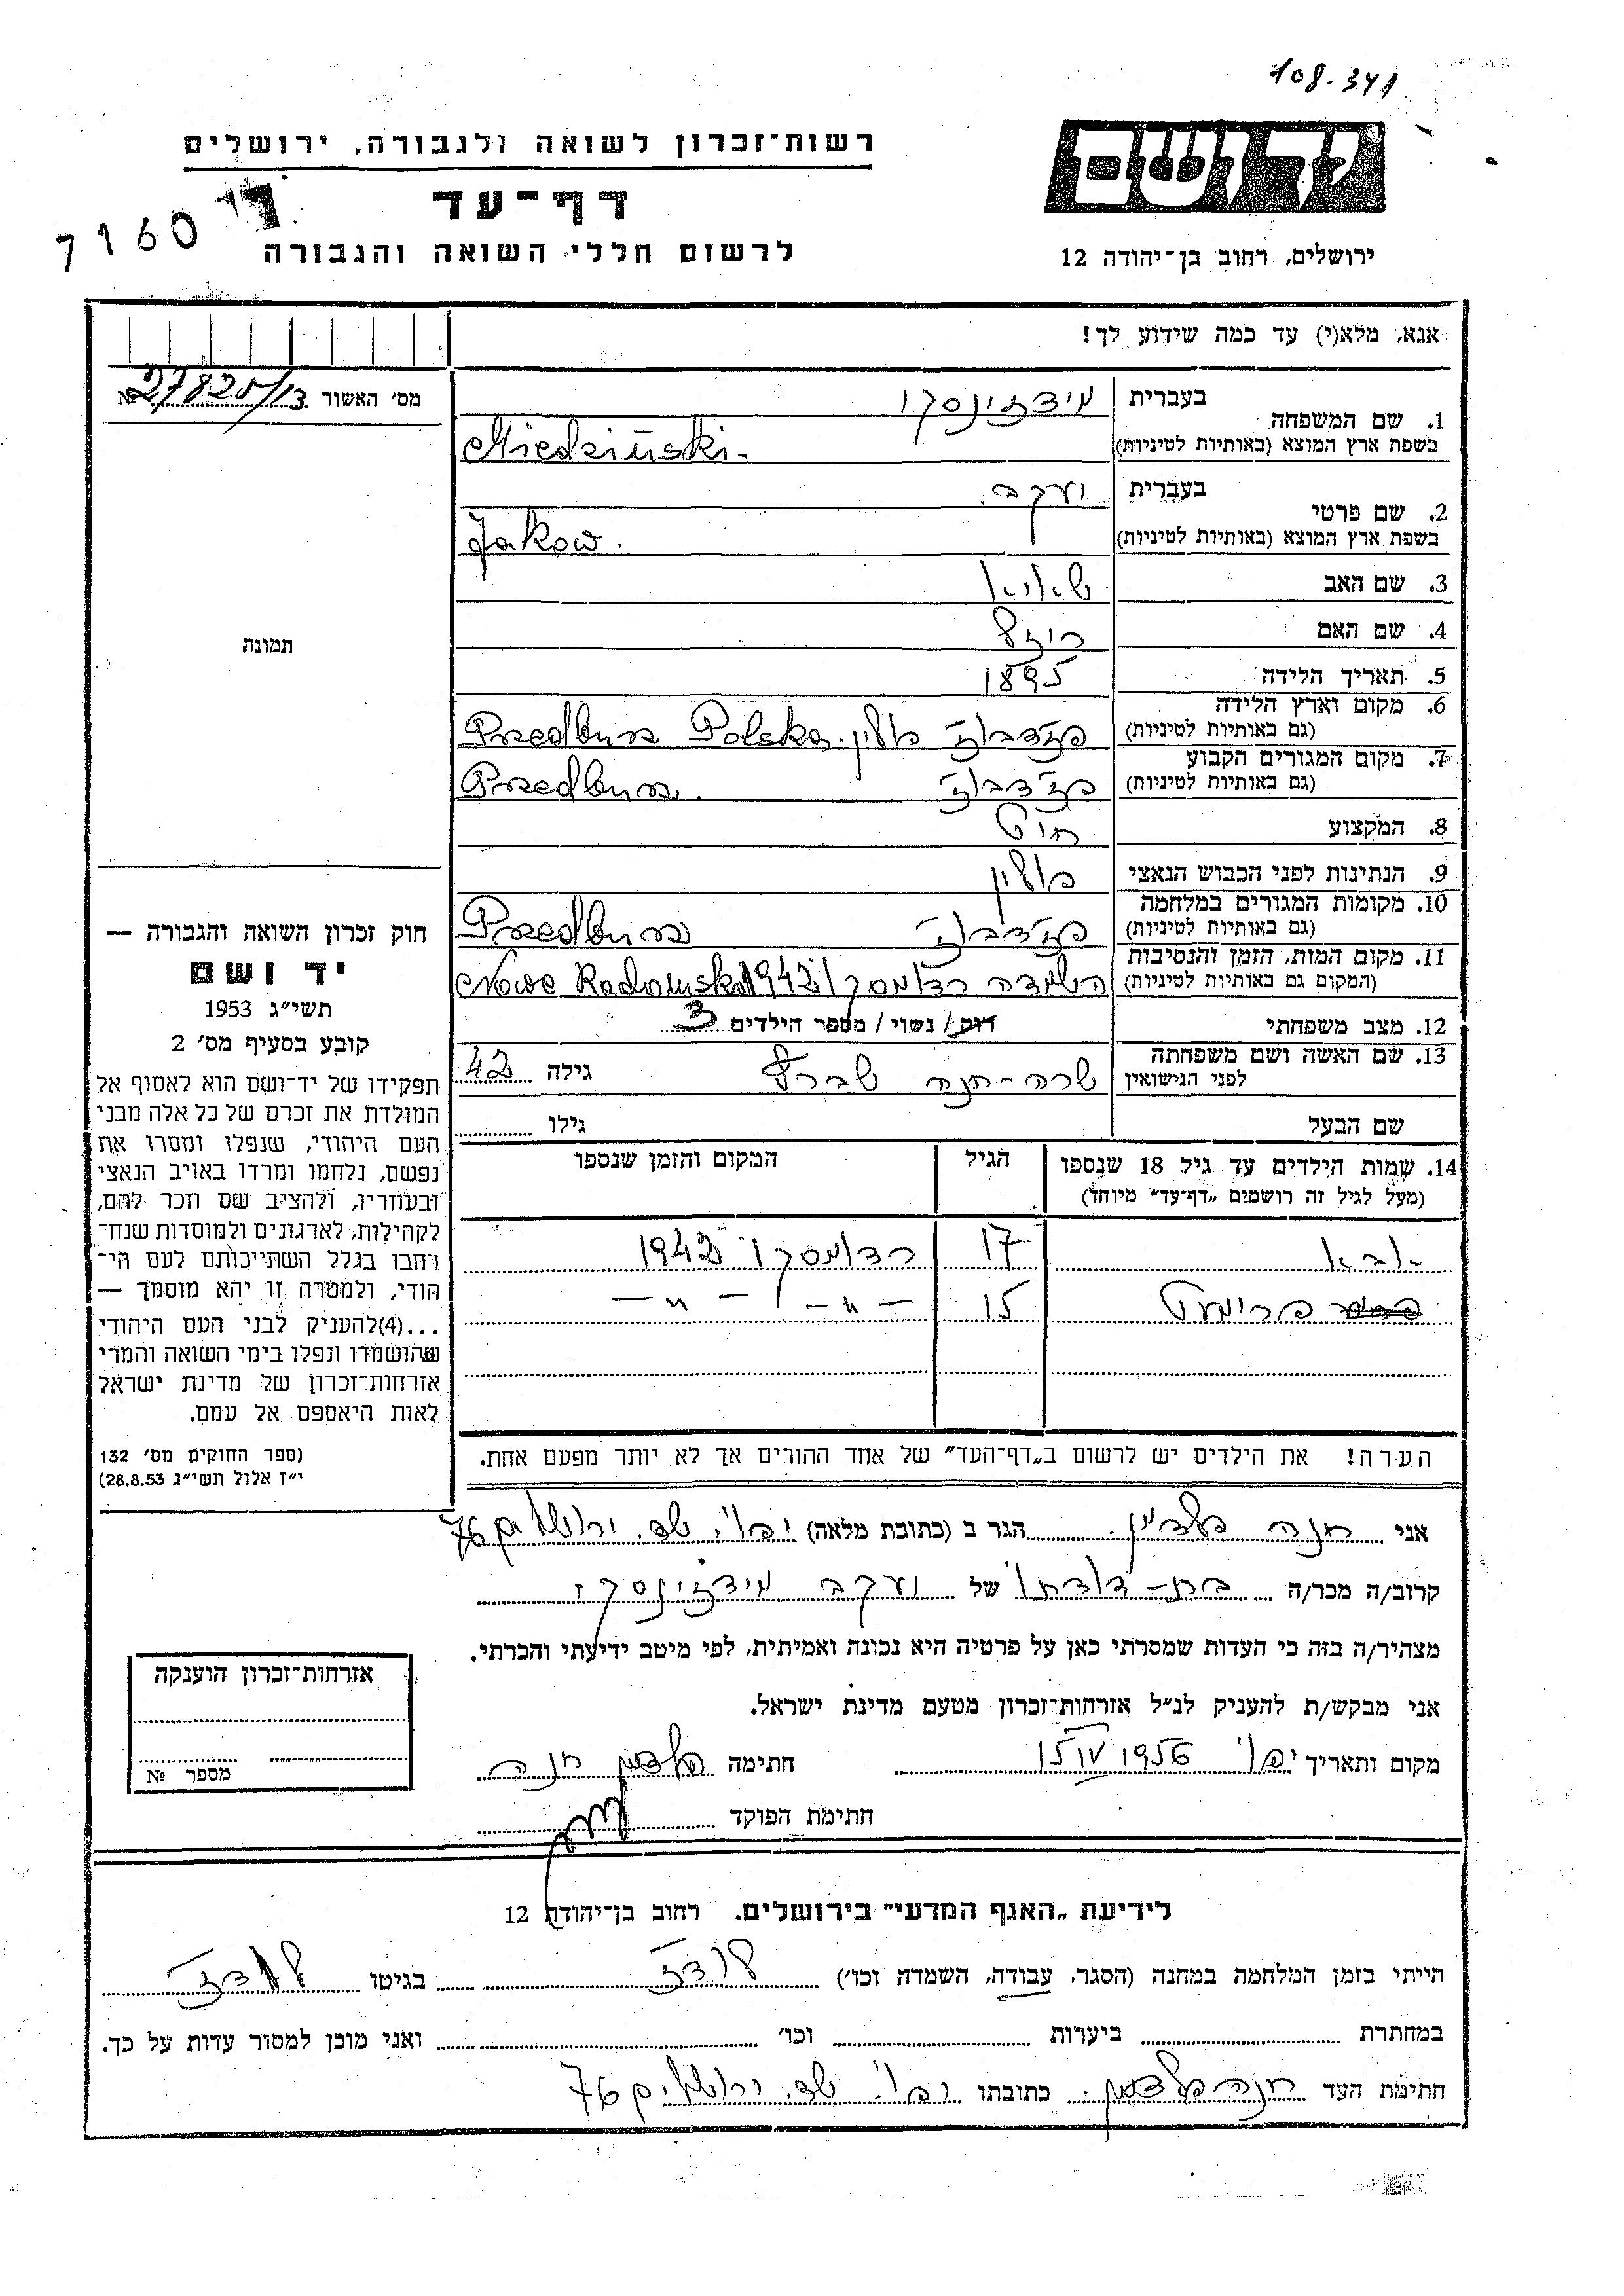 108.341
רשות־זכרון לשואה ולגבורה, ירושלים
יד ושם
דף־עד
7160
לרשום חללי השואה והגבורה
ירושלים, רחוב בן־יהודה 12
אנא, מלא(י) עד כמה שידוע לך!
מס׳ האשור 27825/13 №
1. שם המשפחה בעברית מידזינסקי
בשפת ארץ המוצא (באותיות לטיניות) Miedziński.
2. שם פרטי בעברית יעקב
בשפת ארץ המוצא (באותיות לטיניות) Jakow.
3. שם האב
4. שם האם רוזל
5. תאריך הלידה 1895
6. מקום וארץ הלידה
(גם באותיות לטיניות) פולין. Polska
7. מקום המגורים הקבוע
(גם באותיות לטיניות)
8. המקצוע חיט
9. הנתינות לפני הכבוש הנאצי פולין
10. מקומות המגורים במלחמה
(גם באותיות לטיניות)
11. מקום המות, הזמן והנסיבות
(המקום גם באותיות לטיניות) רדומסק 1942
12. מצב משפחתי רוק / נשוי / מספר הילדים 3
13. שם האשה ושם משפחתה
לפני הנישואין שרה-חנה גילה 42
שם הבעל גילו
14. שמות הילדים עד גיל 18 שנספו הגיל המקום והזמן שנספו
(מעל לגיל זה רושמים „דף־עד” מיוחד)
17 רדומסקו 1942
15 — " — " —
הערה! את הילדים יש לרשום ב„דף־העד” של אחד ההורים אך לא יותר מפעם אחת.
תמונה
חוק זכרון השואה והגבורה —
יד ושם
תשי״ג 1953
קובע בסעיף מס׳ 2
תפקידו של יד־ושם הוא לאסוף אל
המולדת את זכרם של כל אלה מבני
העם היהודי, שנפלו ומסרו את
נפשם, נלחמו ומרדו באויב הנאצי
ובעוזריו, ולהציב שם וזכר להם,
לקהילות, לארגונים ולמוסדות שנח־
רבו בגלל השתייכותם לעם הי־
הודי, ולמטרה זו יהא מוסמך —
...(4)להעניק לבני העם היהודי
שהושמדו ונפלו בימי השואה והמרי
אזרחות־זכרון של מדינת ישראל
לאות היאספם אל עמם.
(ספר החוקים מס׳ 132
י״ז אלול תשי״ג 28.8.53)
אני חנה הגר ב (כתובת מלאה) יפו, שד. ירושלים 76
קרוב/ה מכר/ה בת-דודתו של יעקב מידזינסקי
מצהיר/ה בזה כי העדות שמסרתי כאן על פרטיה היא נכונה ואמיתית, לפי מיטב ידיעתי והכרתי.
אני מבקש/ת להעניק לנ״ל אזרחות־זכרון מטעם מדינת ישראל.
מקום ותאריך יפו 1956 חתימה חנה
חתימת הפוקד
אזרחות־זכרון הוענקה
מספר №
לידיעת „האגף המדעי” בירושלים. רחוב בן־יהודה 12
הייתי בזמן המלחמה במחנה (הסגר, עבודה, השמדה וכו׳) לודז בגיטו לודז
במחתרת ביערות וכו׳ ואני מוכן למסור עדות על כך.
חתימת העד חנה כתובתו יפו. שד. ירושלים 76